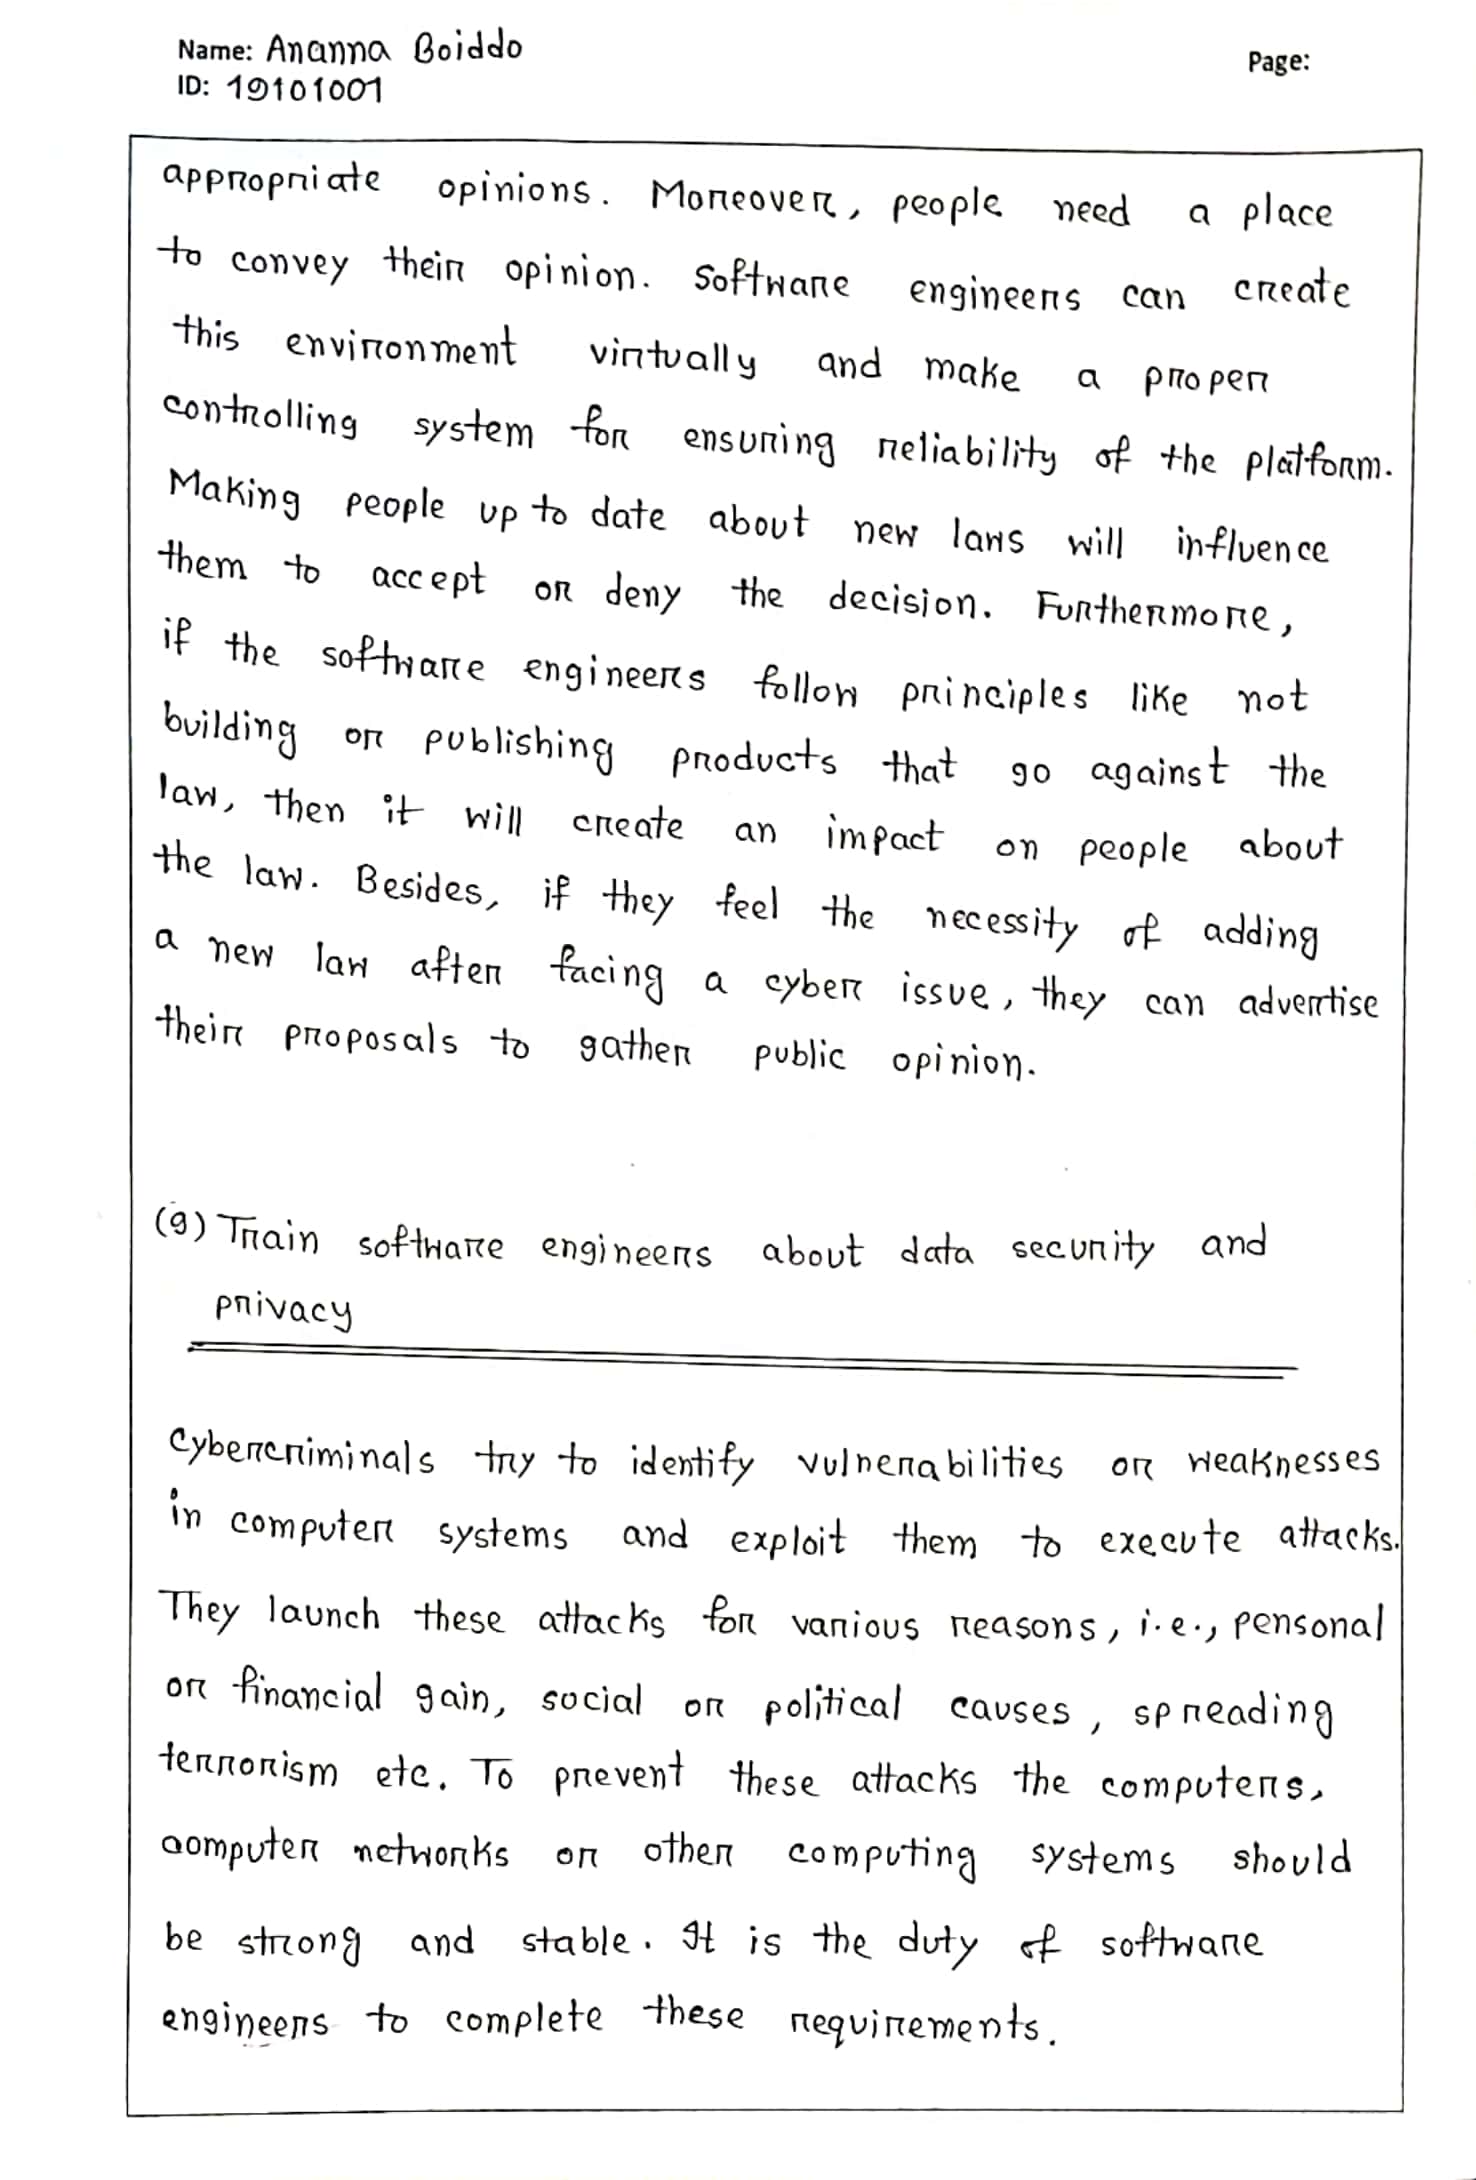 Name: Ananna Boiddo
Page:
ID: 19101001
appropriate opinions. Moreover, people need a place
to convey their opinion. Software engineers can create
this environment virtually and make a proper
controlling system for ensuring reliability of the platform.
Making people up to date about new laws will influence
them to accept or deny the decision. Furthermore,
if the software engineers follow principles like not
building or publishing products that go against the
law, then it will create an impact on people about
the law. Besides, if they feel the necessity of adding
a new law after facing a cyber issue, they can advertise
their proposals to gather public opinion.
(g) Train software engineers about data security and
privacy
Cybercriminals try to identify vulnerabilities or weaknesses
in computer systems and exploit them to execute attacks.
They launch these attacks for various reasons, i.e., personal
or financial gain, social or political causes, spreading
terrorism etc. To prevent these attacks the computers,
computer networks or other computing systems should
be strong and stable. It is the duty of software
engineers to complete these requirements.